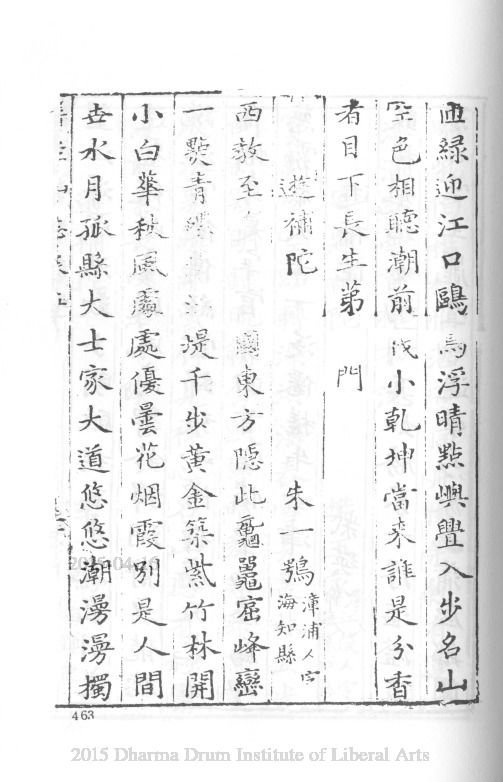 迎綠迎江口鷗鳥浮晴點嶼疊入步名山
空色相聽潮前代小乾坤當來誰是分香
者目下長生第 門
遊補陀 朱一鶚 漳浦人宁海知縣
西教至 國東方隱此黿鼉窟峰巒
一髮青 堤千步黃金築紫竹林開
小白華秋風處處優曇花烟霞別是人間
世水月孤縣大士家大道悠悠潮漫漫獨
普陀山志卷五
463
2015.04.16
2015 Dharma Drum Institute of Liberal Arts